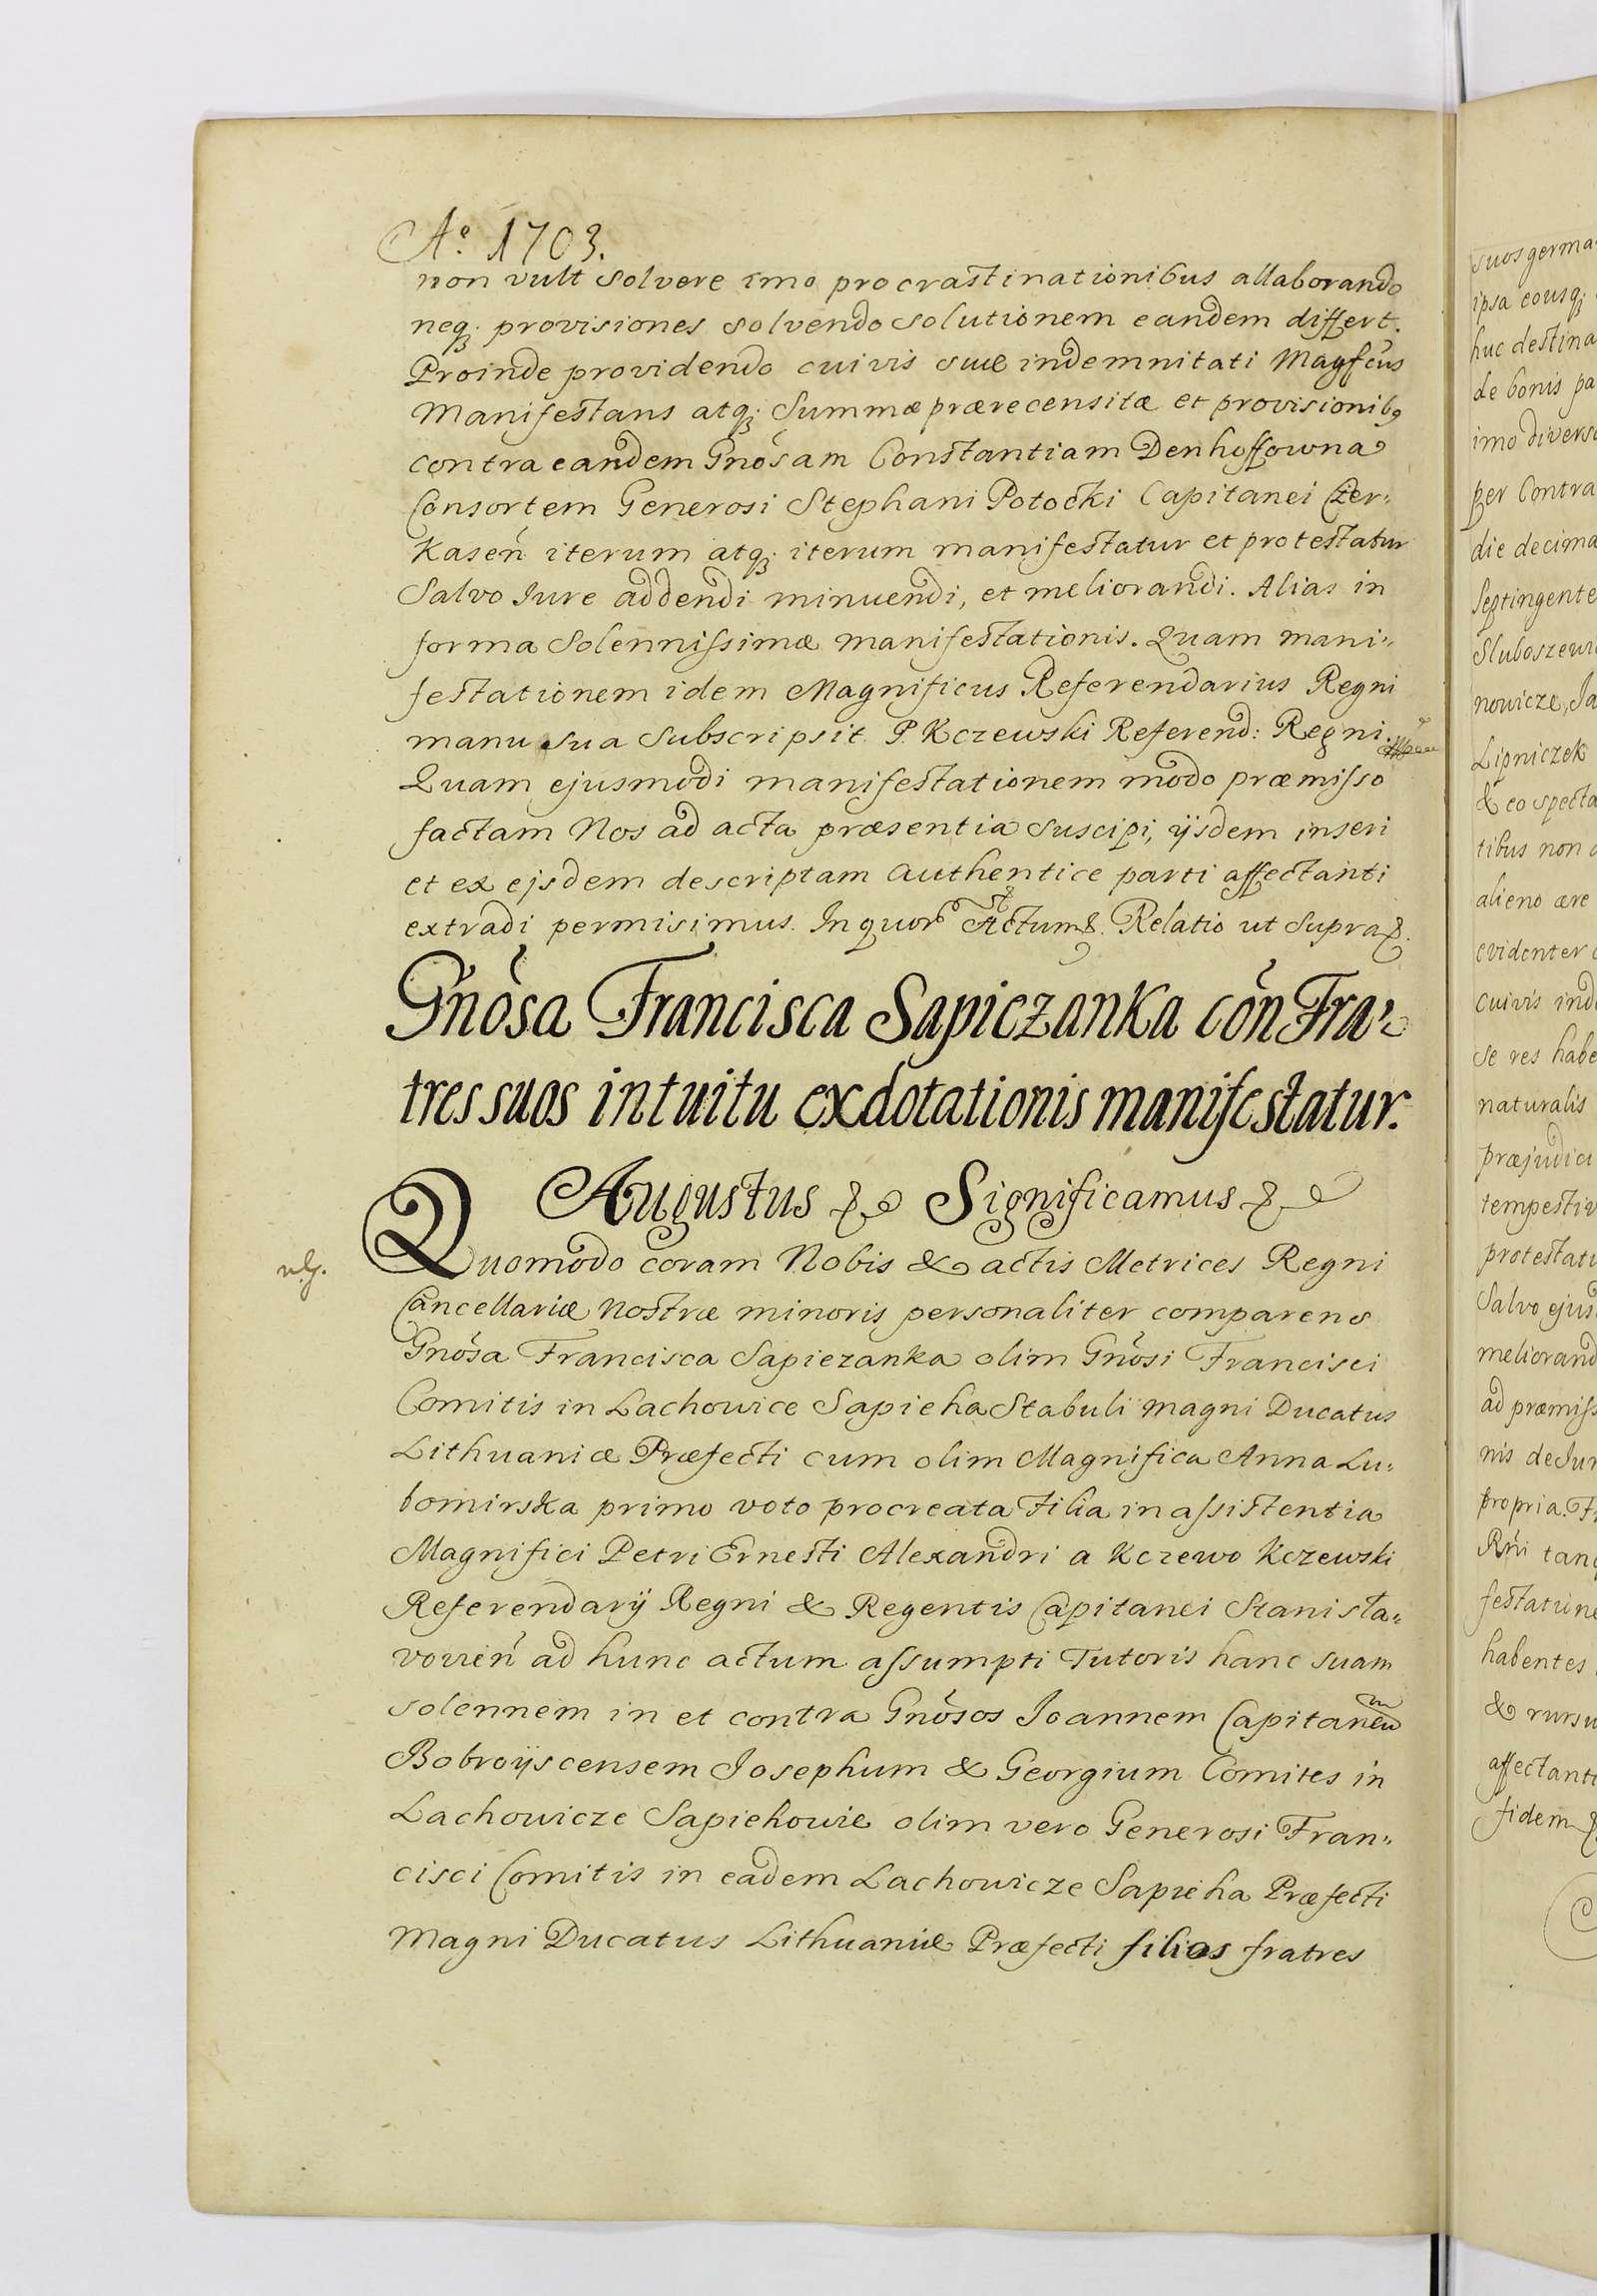 Aº 1703.
non vult solvere imo procrastinationibus allaborando
neqꝫ provisiones solvendo solutionem eandem differt.
Proinde providendo cuivis suæ indemnitati Magfcus
Manifestans atqꝫ Summæ prærecensitæ et provisionibꝰ
contra eandem Gnosam Constantiam Denhoffowna
Consortem Generosi Stephani Potocki Capitanei Czer=
kaseń iterum atqꝫ iterum manifestatur et protestatur
Salvo Jure addendi minuendi, et meliorandi. Alias in
forma Solennissimæ manifestationis. Quam mani=
festationem idem Magnificus Referendarius Regni
manu sua subscripsit P. Kczewski Referend: Regni.
Quam ejusmodi manifestationem modo præmisso
factam Nos ad acta præsentia suscipi, ijsdem inseri
et ex ejsdem descriptam authentice parti affectanti
extradi permisimus. In quor Actum &. Relatio ut supra &.
Gnosa Francisca Sapiezanka con Fra=
tres suos intuitu exdotationis manifestatur.
Augustus & Significamus &
Quomodo coram Nobis & actis Metrices Regni
Cancellariæ nostræ minoris personaliter comparens
Gnosa Francisca Sapiezanka olim Gnosi Francisci
Comitis in Lachowice Sapieha Stabuli magni Ducatus
Lithuaniæ Præfecti cum olim Magnifica Anna Lu=
bomirska primo voto procreata Filia in assistentia
Magnifici Petri Ernesti Alexandri a Kczewo Kczewski
Referendarij Regni & Regentis Capitanei Stanisła=
vovień ad hunc actum assumpti Tutoris hanc suam
solennem in et contra Gnosos Joannem Capitaneum
Bobroijscensem Josephum & Georgium Comites in
Lachowicze Sapiehowie olim vero Generosi Fran=
cisci Comitis in eadem Lachowicze Sapieha Præfecti
Magni Ducatus Lithuaniæ Præfecti filios fratres
suos germa
ipsa eousqꝫ
huc destina
de bonis pa
imo divers
per Contra
die decima
Septingente
Sluboszew
nowicze, Ja
Lipniczek
& eo specta
tibus non
alieno ære
evidenter
cuivis ind
se res habe
naturalis
præjudici
tempestiv
protestatu
Salvo ejus
meliorand
ad præmiss
nis de Jur
propria. F
Rńi tanq
festatione
habentes
& rursu
affectant
fidem &